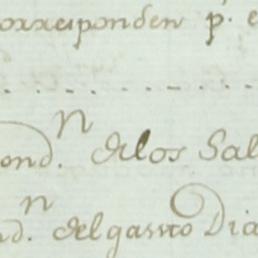 orresponden p.^r e
ond.^n de los Sal
nd.^n del gasto Dia